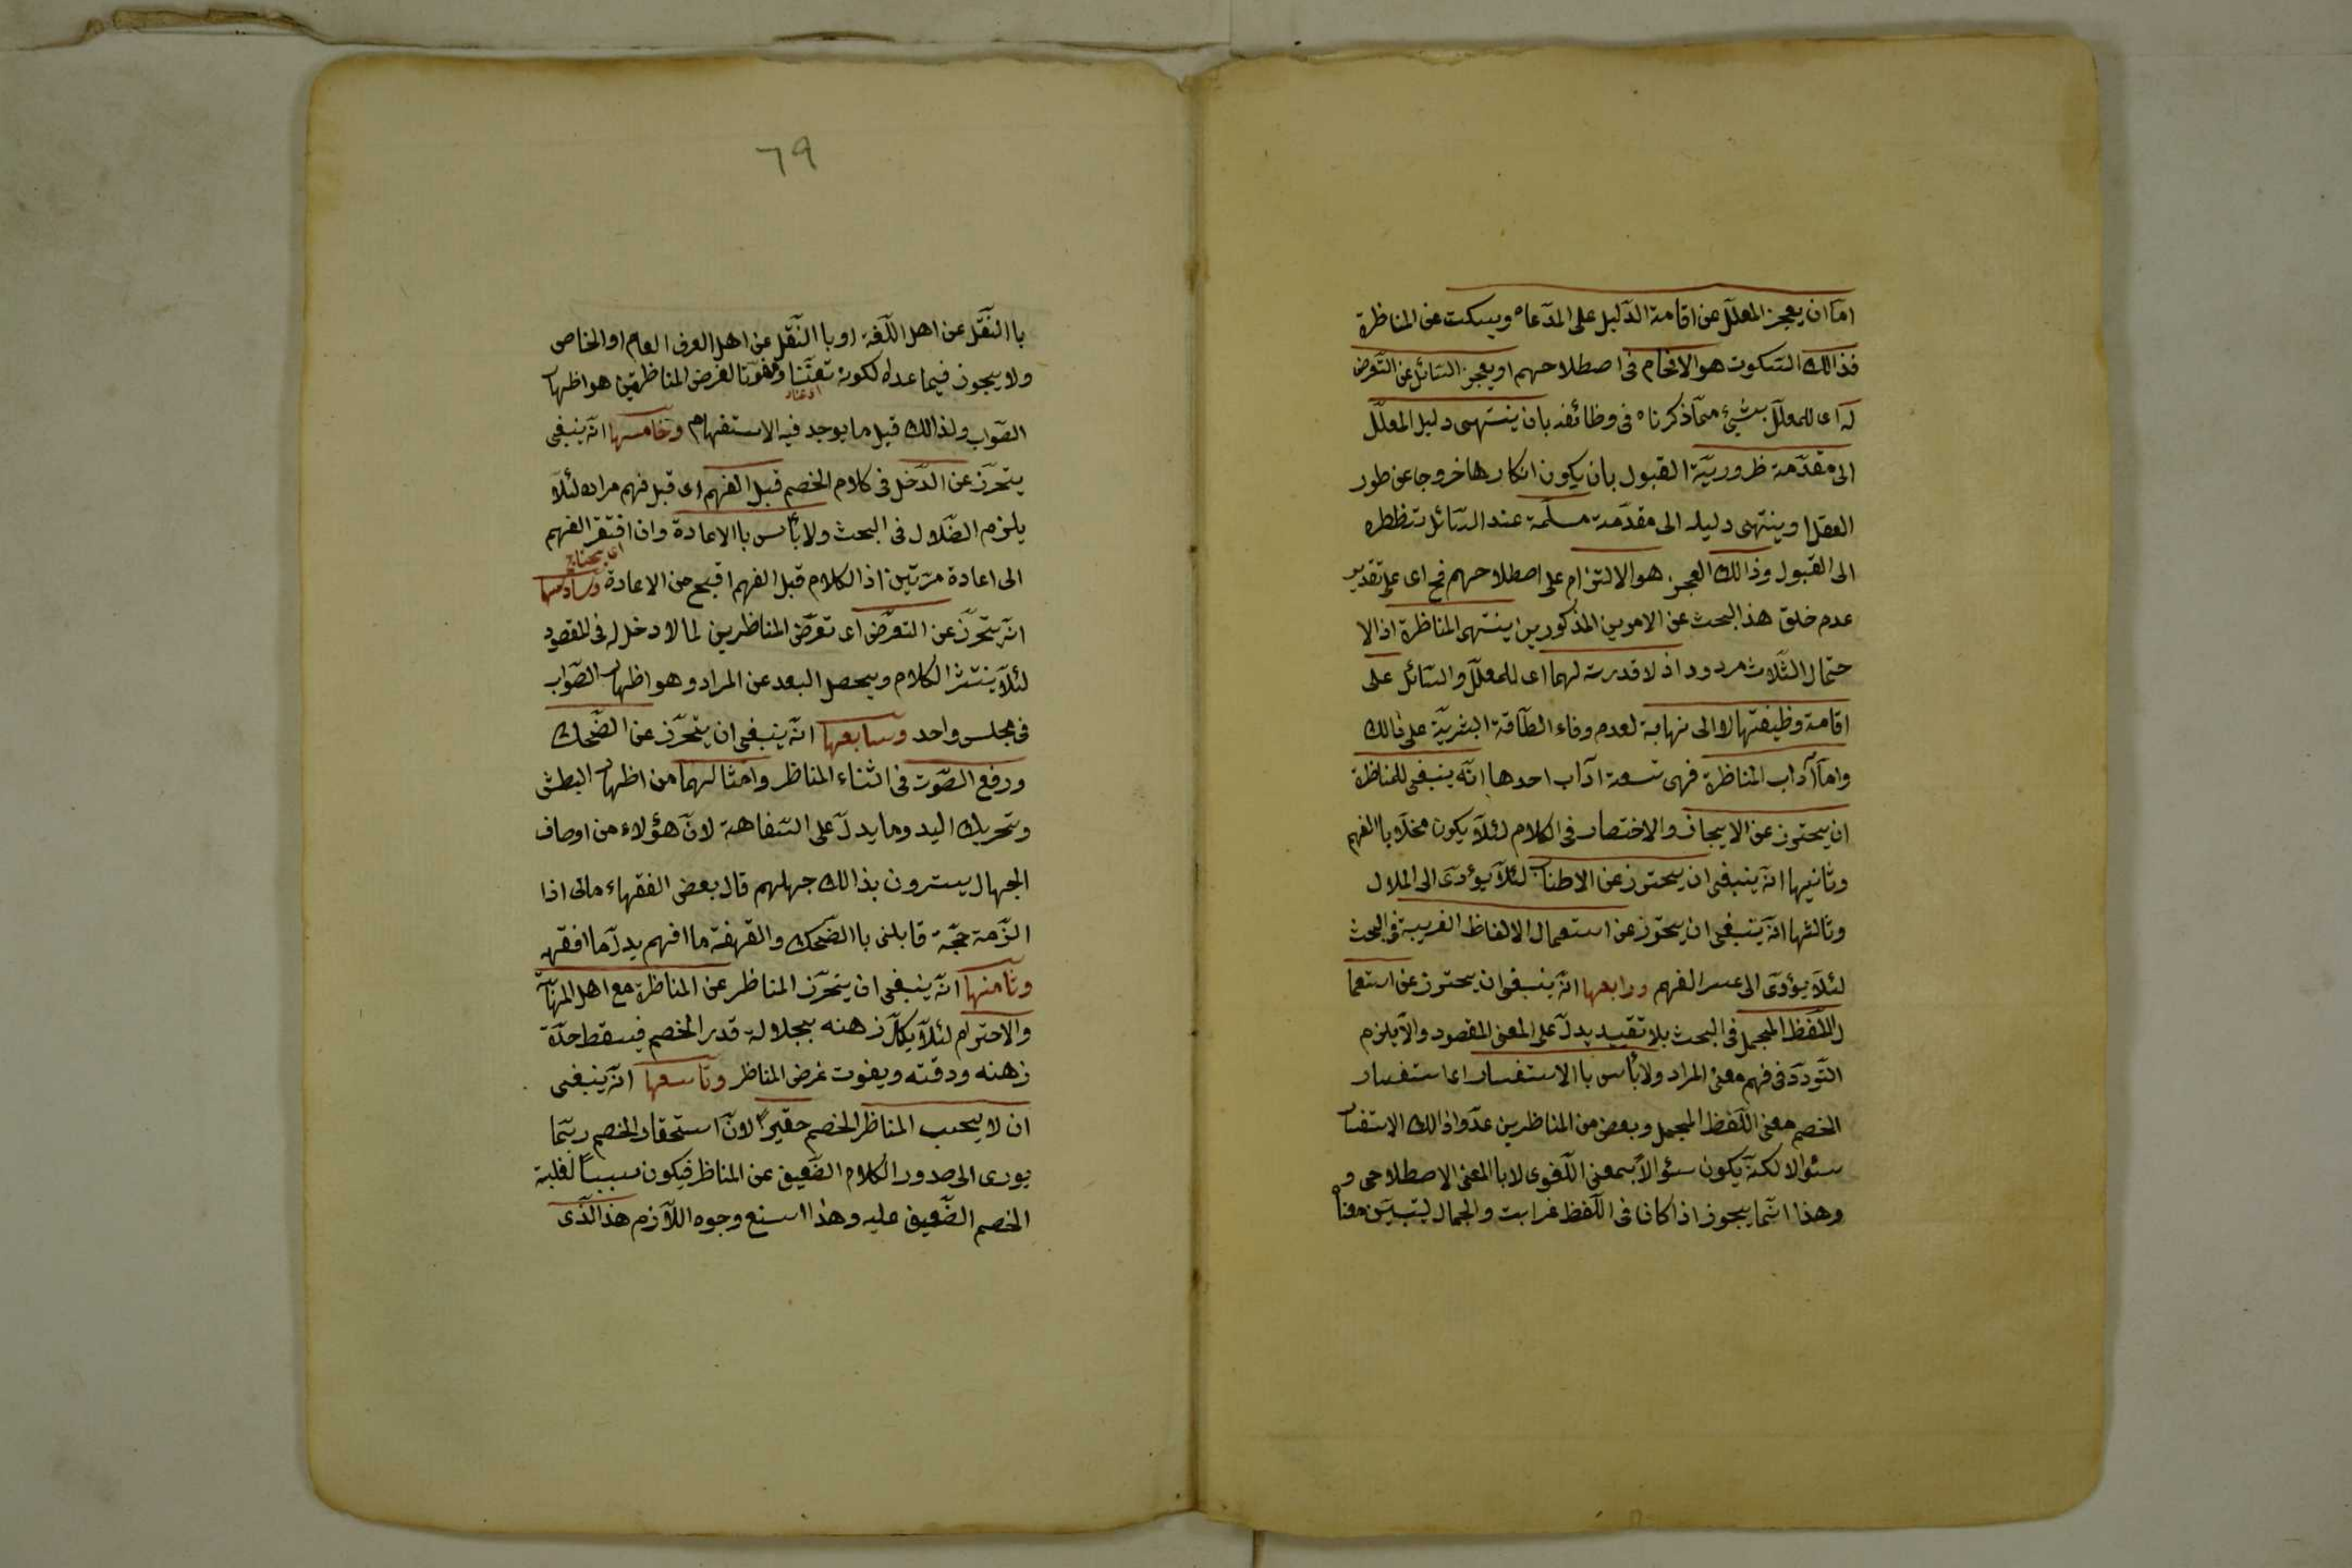 اما ان يعجز المعلل عن اقامة الدليل على المدعاه ويسكت عن المناظرة
فذالك السكوت هو الافحام فى اصطلاحهم او يعجز السائل عن التعرض
له اى للمعلل بشئ مما ذكرناه فى وظائفه بان ينتهى دليل المعلل
الى مقدمة ظرورية القبول بان يكون انكارها خروجا عن طور
العقل او ينتهى دليله الى مقدمة مسلمة عند السائل تظطره
الى القبول وذالك العجز هو الالتزام على اصطلاحهم فح اى على تقدير
عدم خلق هذا البحث عن الامرين المذكورين ينتهى المناظرة اذ الا
حتمال الثلاث مردود اذ لا قدرت لهما اى للمعلل والسائل على
اقامة وظيفتها لا الى نهاية لعدم وفاء الطاقة البشرية على ذالك
واما آداب المناظرة فهى تسعة آداب احدها انه ينبغى للمناظرة
ان يحترز عن الايجاز والاختصار فى الكلام لئلا يكون مخلا با الفهم
وثانيها انه ينبغى ان يحترز عن الاطناب لئلا يؤدى الى الملال
وثالثها انه ينبغى ان يحترز عن استعمال الالفاظ الغريبة فى البحث
لئلا يؤدى الى عسر الفهم ورابعها انه ينبغى ان يحترز عن استعما
ل اللفظ المجمل فى البحث بلا تقييد يدل على المعنى المقصود والا يلزم
التردد فى فهم معنى المراد ولا بأس با الاستفسار اى استفسار
الخصم معنى اللفظ المجمل وبعض من المناظرين عدوا ذالك الاستفسار
سئوالا لكنه يكون سئوالا بمعنى اللغوى لا با المعنى الاصطلاحى و
وهذا انما يجوز اذا كان فى اللفظ غرابت والجمال ليتبين معناه
٦٩
با النقل عن اهل اللغة او با النقل عن اهل العرف العام او الخاص
ولا يجوز فيما عداه لكونه تعنتا ومفوتا لغرض المناظرين هو اظهار
اى عناد
الصواب ولذالك قيل ما يوجد فيه الاستفهام وخامسها انه ينبغى
يتحرز عن الدخل فى كلام الخصم قبل الفهم اى قبل فهم مراده لئلا
يلزم الضلال فى البحث ولا بأس با الاعادة وان افتقر الفهم
اى يحتاج
الى اعادة مرتين اذ الكلام قبل الفهم اقبح من الاعادة وسادسها
انه يتحرز عن التعرض اى تعرض المناظرين لما لا دخل له فى المقصود
لئلا ينتشر الكلام ويحصل البعد عن المراد وهو اظهار الصواب
فى مجلس واحد وسابعها انه ينبغى ان يتحرز عن الضحك
ورفع الصوت فى اثناء المناظر وامثالهما من اظهار البطش
وتحريك اليد وما يدل على السفاهة لان هؤلاء من اوصاف
الجهال يسترون بذالك جهلهم قال بعض الفقهاء مالى اذا
الزمة حجة قابلنى با الضحك والقهقة ما افهم يدل ما افقه
وثامنها انه ينبغى ان يتحرز المناظر عن المناظرة مع اهل المهابة
والاحترام لئلا يكل زهنه بجلالة قدر الخصم فيسقط حدة
زهنه ودقته ويفوت غرض المناظر وتاسعها انه ينبغى
ان لا يحسب المناظر الخصم حقيرا لان استحقار الخصم ربما
يورى الى صدور الكلام الضعيف عن المناظر فيكون سببا لغلبة
الخصم الضعيف عليه وهذا اسنع وجوه اللازم هذا الذى